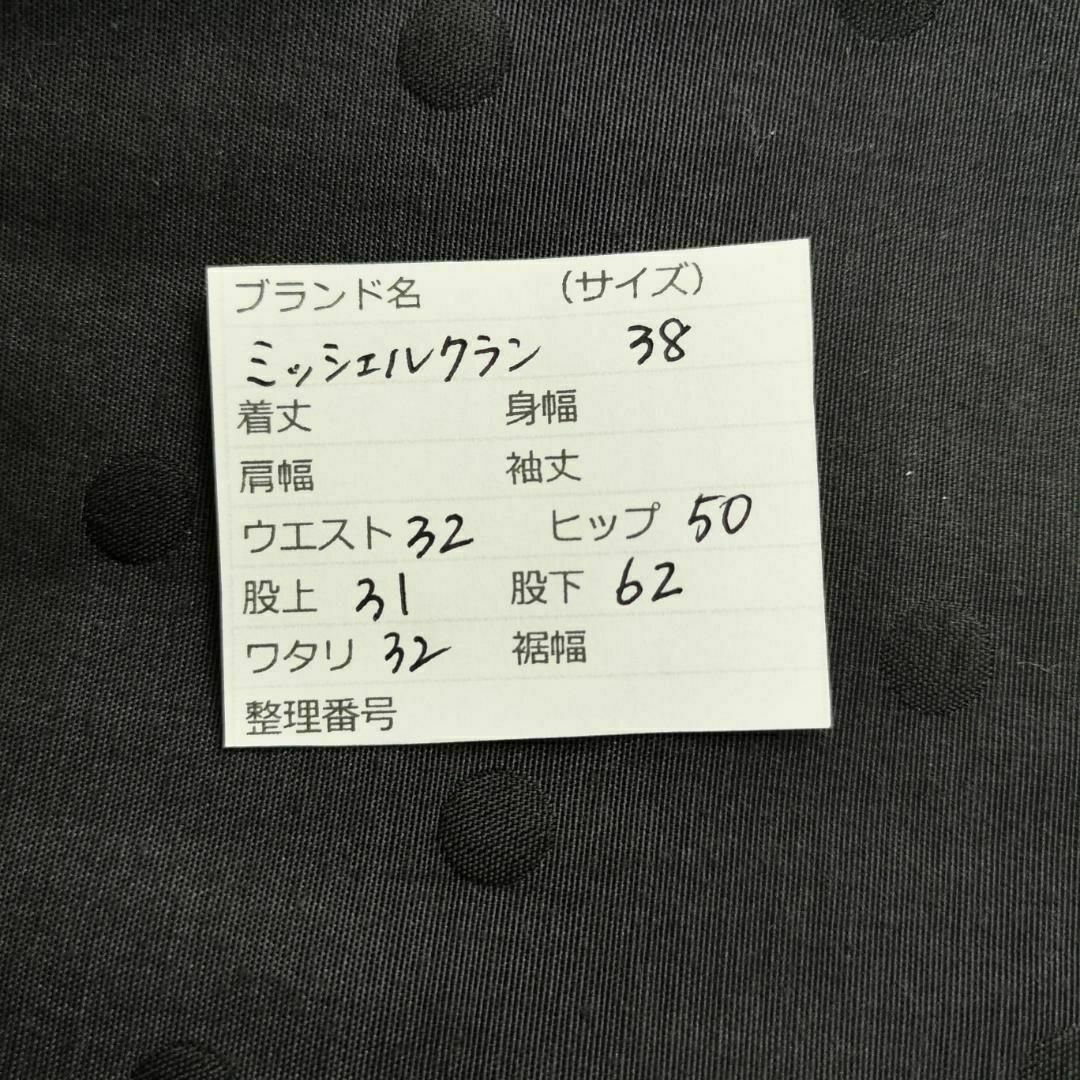 ブランド名 (サイズ)
ミッシェルクラン 38
着丈 身幅
肩幅 袖丈
ウエスト 32 ヒップ 50
股上 31 股下 62
ワタリ 32 裾幅
整理番号